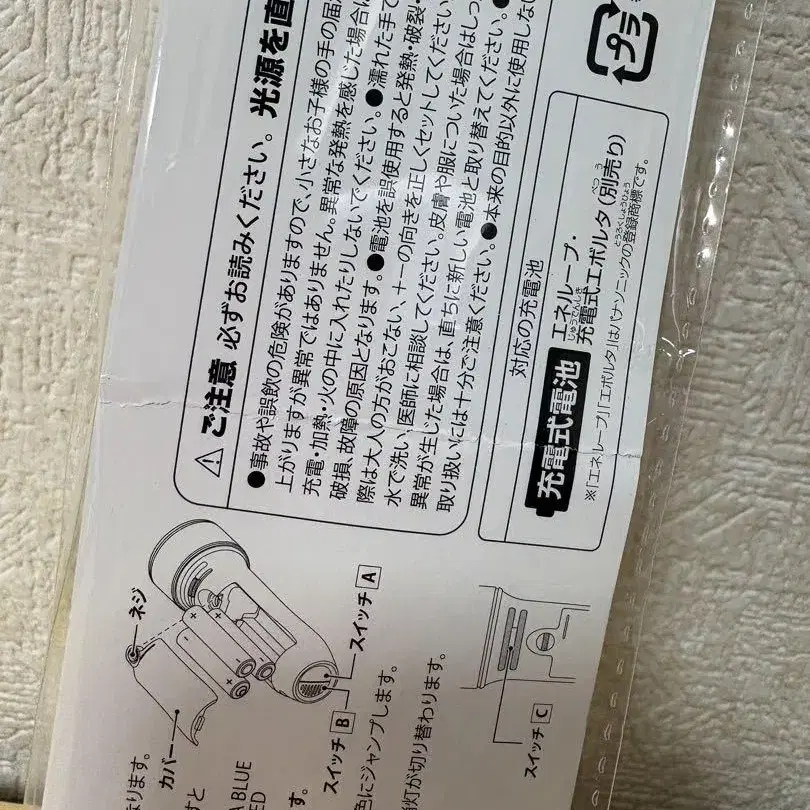 ⚠ご注意 必ずお読みください。光源を直
●事故や誤飲の危険がありますので、小さなお子様の手の届
上がりますが異常ではありません。異常な発熱を感じた場合は
充電・加熱・火の中に入れたりしないでください。●濡れた手で
破損、故障の原因となります。●電池を誤使用すると発熱・破裂・
際は大人の方がおこない、+-の向きを正しくセットしてください
水で洗い、医師に相談してください。皮膚や服についた場合はしっ
異常が生じた場合は、直ちに新しい電池と取り替えてください。●
取り扱いには十分ご注意ください。●本来の目的以外に使用しない
対応の充電池
充電式電池
エネループ・
じゅうでんしき べつ う
充電式エボルタ(別売り)
とうろくしょうひょう
※「エネループ」「エボルタ」はパナソニックの登録商標です。
プラ
ネジ
カバー
スイッチ A
スイッチ B
スイッチ C
ります。
すと
A BLUE
ED
す。
色にジャンプします。
灯が切り替わります。